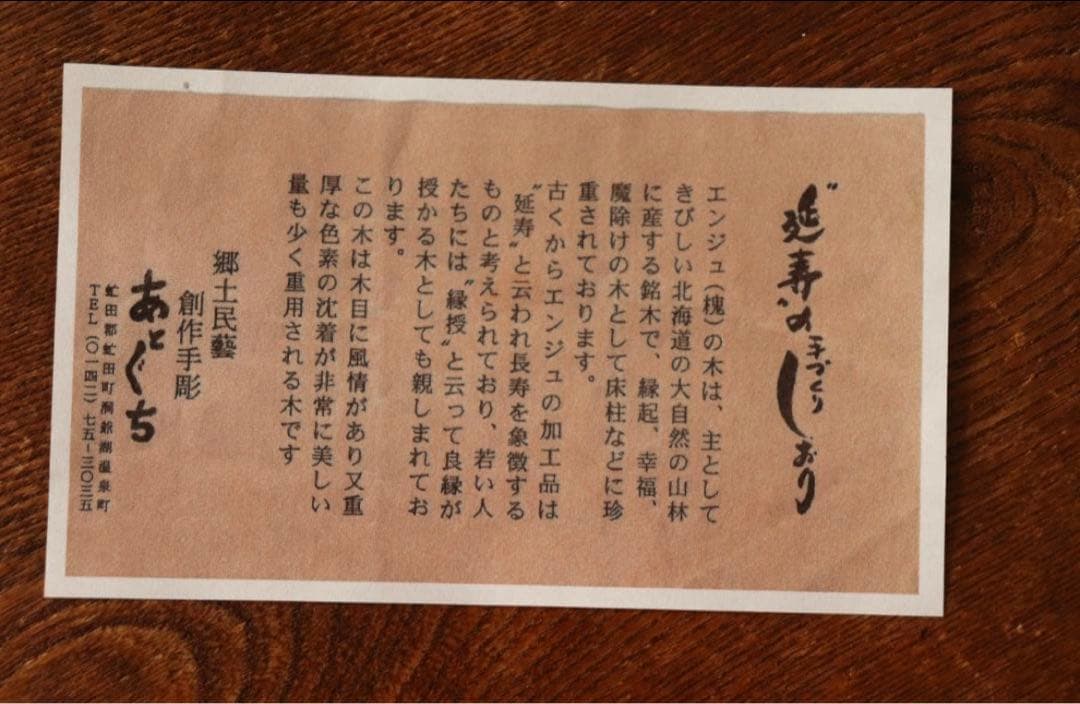 〝延寿〟の手づくりしおり
エンジュ(槐)の木は、主として
きびしい北海道の大自然の山林
に産する銘木で、縁起、幸福、
魔除けの木として床柱などに珍
重されております。
古くからエンジュの加工品は
〝延寿〟と云われ長寿を象徴する
ものと考えられており、若い人
たちには〝縁授〟と云って良縁が
授かる木としても親しまれてお
ります。
この木は木目に風情があり又重
厚な色素の沈着が非常に美しい
量も少く重用される木です
郷土民藝
創作手彫
あとぐち
虻田郡虻田町洞爺湖温泉町
TEL(〇一四二)七五-三〇三五